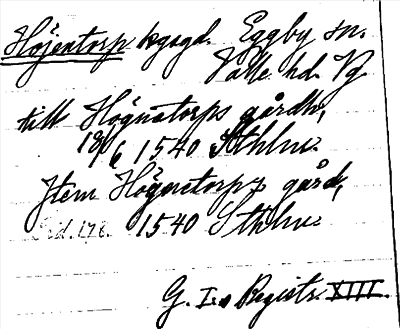 Höjentorp kgsgd. Eggby sn.
Valle hd. Vg
till Högnatorps gårdh,
18/6 1540 Sthlm.
Jtem Högnatorps gård,
sid. 178. 1540 Sthlm.
G. I:s Registr. XIII.